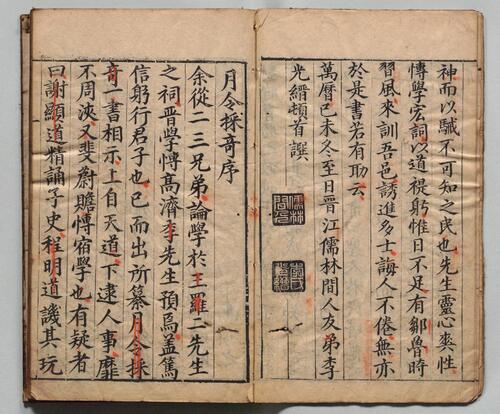 神而以駴不可知之民也先生靈心爽性
愽學宏詞以道禔躬惟日不足有鄒魯時
習風來訓吾邑誘進多士誨人不倦無亦
於是書若有助云
萬曆己未冬至日晋江儒林間人友弟李
光縉頓首譔
儒林間人
月令採奇序
余從二三兄弟論學於王羅二先生
之祠晋學愽高濟李先生預焉盖篤
信躬行君子也已而出所纂月令採
奇一書相示上自天道下逮人事靡
不周浹又斐蔚贍愽宿學也有疑者
曰謝顯道精誦子史程明道譏其玩